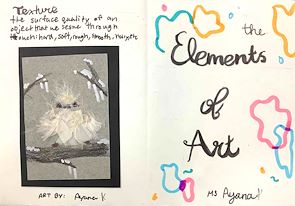 Texture
the surface quality of an
object that we sense through
touch: hard, soft, rough, smooth,
ART BY: Ayana V.
the
Elements
of
Art
MS Ayana V